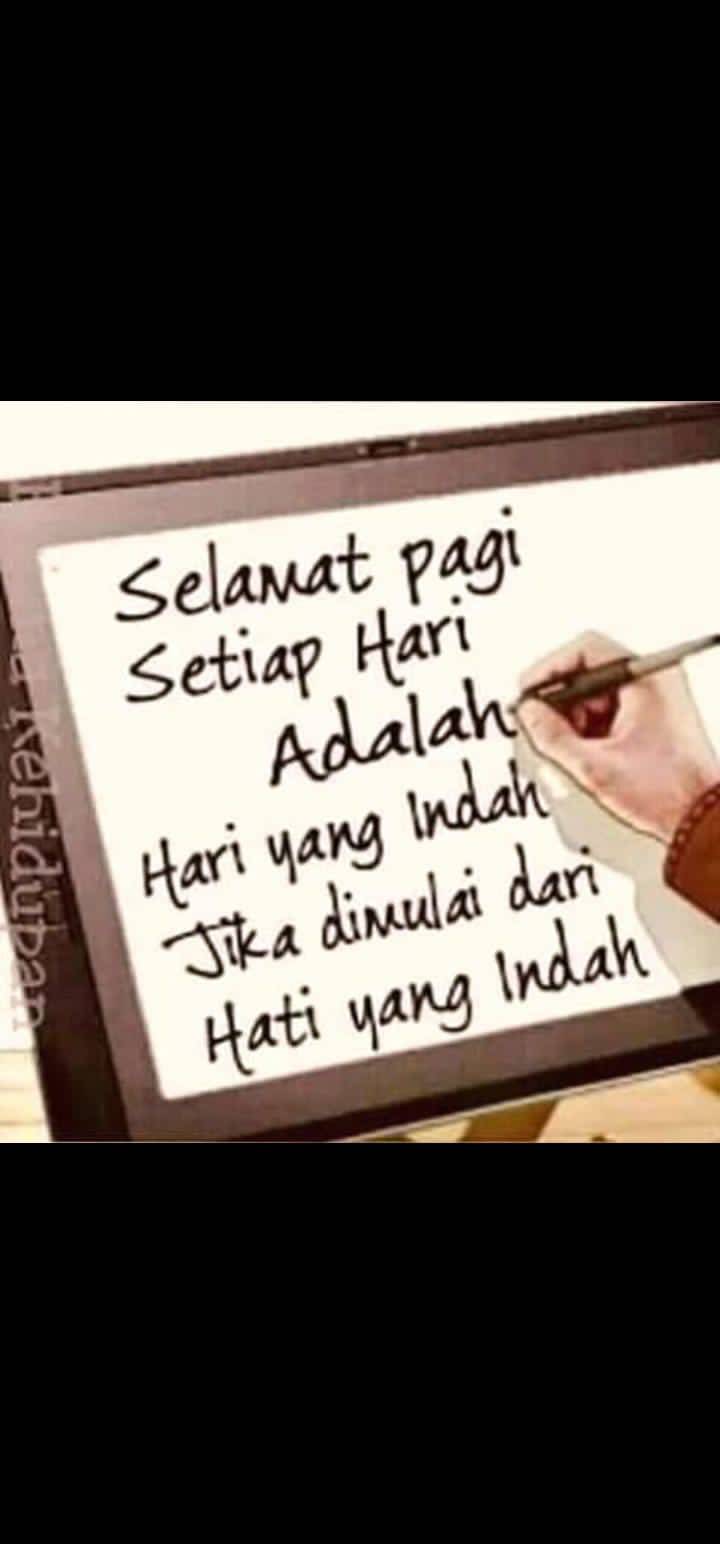 Selamat pagi
Setiap Hari
Adalah
Hari yang Indah
Jika dimulai dari
Hati yang Indah
Kehidupan